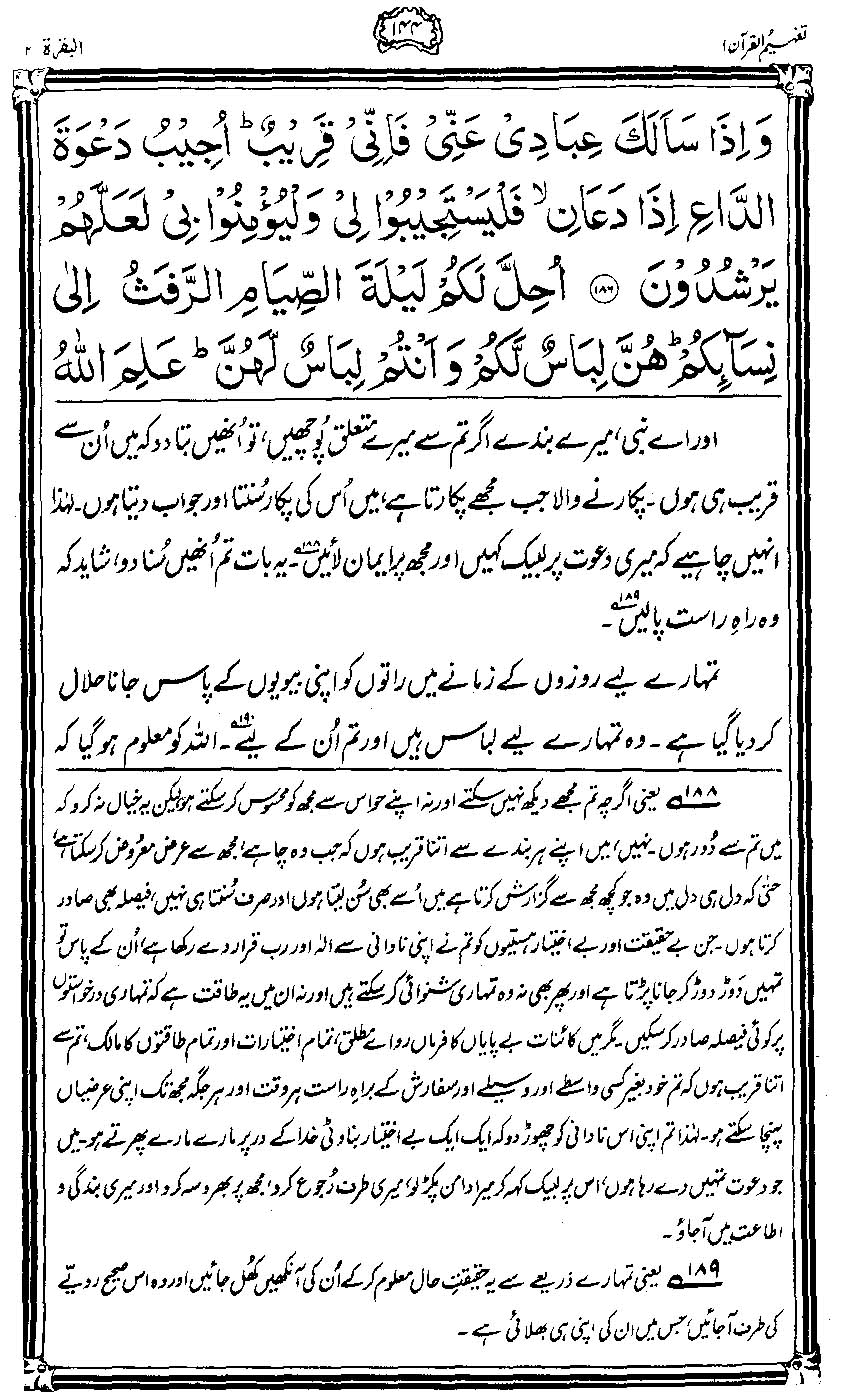 تفہیم القرآن ۱
۱۴۴
البقرۃ ۲
وَاِذَا سَاَلَكَ عِبَادِیْ عَنِّیْ فَاِنِّیْ قَرِیْبٌ ؕ اُجِیْبُ دَعْوَةَ
الدَّاعِ اِذَا دَعَانِ ۙ فَلْیَسْتَجِیْبُوْا لِیْ وَلْیُؤْمِنُوْا بِیْ لَعَلَّهُمْ
یَرْشُدُوْنَ ﴿۱۸۶﴾ اُحِلَّ لَكُمْ لَیْلَةَ الصِّیَامِ الرَّفَثُ اِلٰى
نِسَآىِٕكُمْ ؕ هُنَّ لِبَاسٌ لَّكُمْ وَاَنْتُمْ لِبَاسٌ لَّهُنَّ ؕ عَلِمَ اللّٰهُ
اور اے نبی، میرے بندے اگر تم سے میرے متعلق پُوچھیں، تو اُنھیں بتا دو کہ میں اُن سے
قریب ہی ہوں۔ پکارنے والا جب مجھے پکارتا ہے، میں اُس کی پکار سُنتا اور جواب دیتا ہوں۔ لہٰذا
انہیں چاہیے کہ میری دعوت پر لبیک کہیں اور مجھ پر ایمان لائیں۱۸۸۔ یہ بات تم اُنھیں سُنا دو، شاید کہ
وہ راہِ راست پالیں۱۸۹۔
تمہارے لیے روزوں کے زمانے میں راتوں کو اپنی بیویوں کے پاس جانا حلال
کر دیا گیا ہے۔ وہ تمہارے لیے لباس ہیں اور تم اُن کے لیے۱۹۰۔ اللہ کو معلوم ہو گیا کہ
۱۸۸ یعنی اگرچہ تم مجھے دیکھ نہیں سکتے اور نہ اپنے حواس سے مجھ کو محسوس کر سکتے ہو، لیکن یہ خیال نہ کرو کہ
میں تم سے دُور ہوں۔ نہیں، میں اپنے ہر بندے سے اتنا قریب ہوں کہ جب وہ چاہے، مجھ سے عرض معروض کر سکتا ہے،
حتیٰ کہ دل ہی دل میں وہ جو کچھ مجھ سے گزارش کرتا ہے میں اُسے بھی سُن لیتا ہوں اور صرف سُنتا ہی نہیں، فیصلہ بھی صادر
کرتا ہوں۔ جن بے حقیقت اور بے اختیار ہستیوں کو تم نے اپنی نادانی سے الٰہ اور رب قرار دے رکھا ہے، اُن کے پاس تو
تمہیں دَوڑ دوڑ کر جانا پڑتا ہے اور پھر بھی نہ وہ تمہاری شنوائی کر سکتے ہیں اور نہ ان میں یہ طاقت ہے کہ تمہاری درخواستوں
پر کوئی فیصلہ صادر کر سکیں۔ مگر میں کائنات بے پایاں کا فرماں روائے مطلق، تمام اختیارات اور تمام طاقتوں کا مالک، تم سے
اتنا قریب ہوں کہ تم خود بغیر کسی واسطے اور وسیلے اور سفارش کے براہِ راست ہر وقت اور ہر جگہ مجھ تک اپنی عرضیاں
پہنچا سکتے ہو۔ لہٰذا تم اپنی اس نادانی کو چھوڑ دو کہ ایک ایک بے اختیار بناوٹی خدا کے در پر مارے مارے پھرتے ہو۔ میں
جو دعوت تمہیں دے رہا ہوں، اس پر لبیک کہہ کر میرا دامن پکڑ لو، میری طرف رُجوع کرو، مجھ پر بھروسہ کرو اور میری بندگی و
اطاعت میں آجاؤ۔
۱۸۹ یعنی تمہارے ذریعے سے یہ حقیقتِ حال معلوم کر کے اُن کی آنکھیں کھُل جائیں اور وہ اس صحیح رویّے
کی طرف آجائیں، جس میں ان کی اپنی ہی بھلائی ہے۔